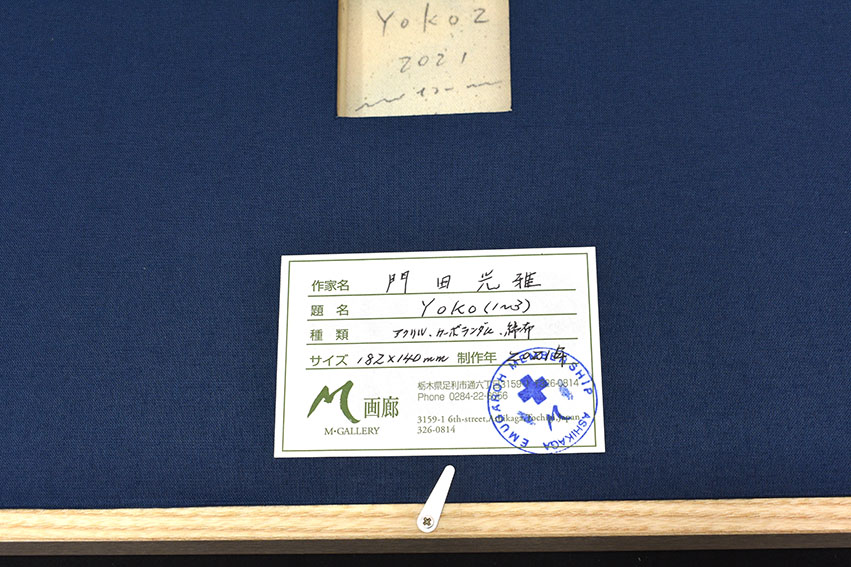 Yoko 2
2021
作家名 門田光雅
題名 Yoko (1~3)
種類 アクリル、カーボランダム、綿布
サイズ 182×140mm 制作年 2021年
M画廊
M•GALLERY
栃木県足利市通六丁目3159 326-0814
Phone 0284-22-
3159-1 6th-street, Ashikaga, Tochigi, Japan
326-0814
EMUGAROH MEMBERSHIP ASHIKAGA
M